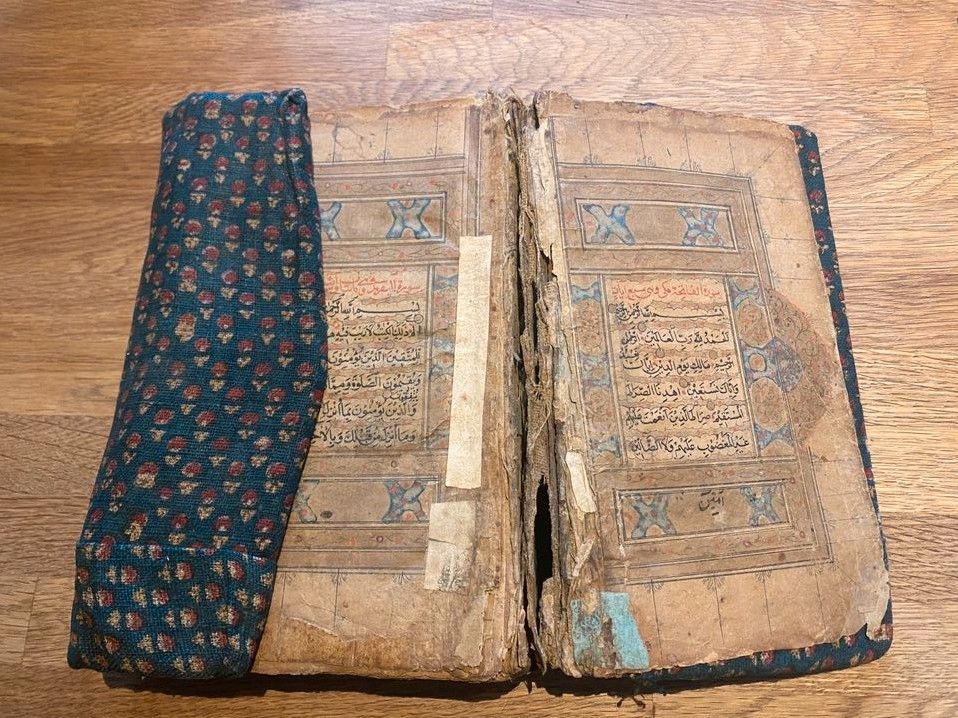 سورة الفاتحة
بسم الله الرحمن الرحيم
الحمد لله رب العالمين الرحمن
الرحيم مالك يوم الدين اياك نعبد
واياك نستعين اهدنا الصراط
المستقيم صراط الذين انعمت عليهم
غير المغضوب عليهم ولا الضالين
آمين
بسم الله الرحمن
الم ذلك الكتاب لا ريب فيه
للمتقين الذين يؤمنون
ويقيمون الصلوة ومما
ينفقون
والذين يؤمنون بما انزل
وما انزل من قبلك